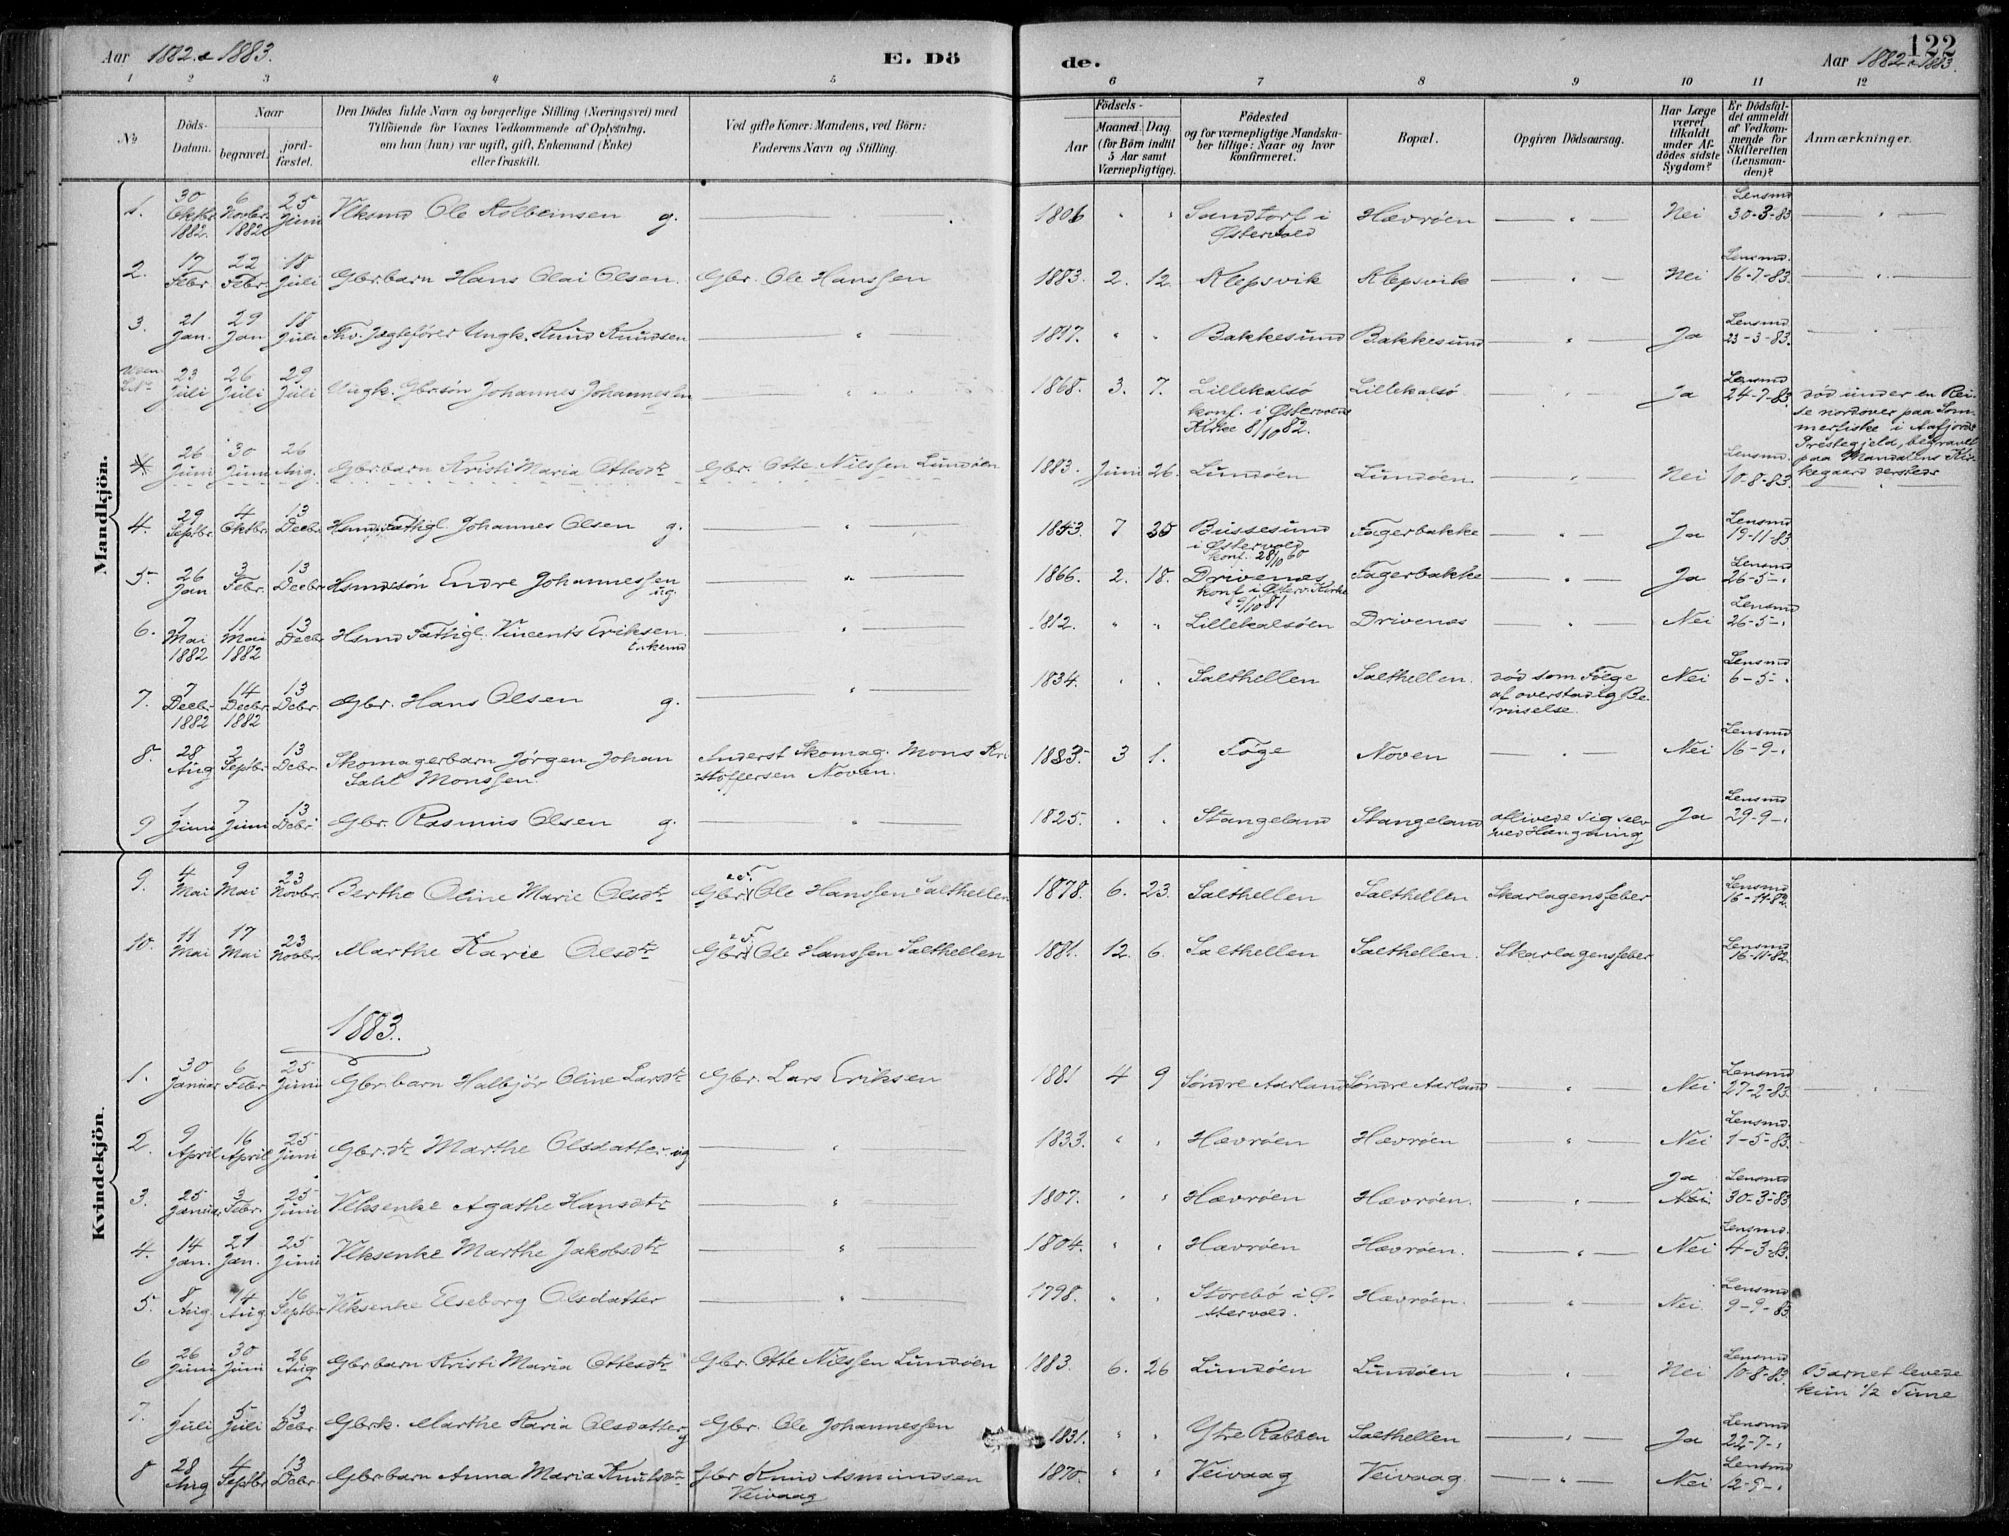 Aar 1882 & 1883.
E. Dö
de.
Aar 1882 & 1883.
122
1 2 3 4 5 6 7 8 9 10 11 12
No.
Döds-Datum.
Naar
begravet.
jord-fæstet.
Den Dödes fulde Navn og borgerlige Stilling (Næringsvei) med
Tilföiende for Voxnes Vedkommende af Oplysning,
om han (hun) var ugift, gift, Enkemand (Enke)
eller fraskilt.
Ved gifte Koner: Mandens, ved Börn:
Faderens Navn og Stilling.
Födsels-
Aar
Maaned. Dag.
(for Börn indtil
5 Aar samt
Værnepligtige).
Födested
og for værnepligtige Mandska-
ber tillige: Naar og hvor
konfirmeret.
Bopæl.
Opgiven Dödsaarsag.
Har Læge
været
tilkaldt
under Af-
dödes sidste
Sygdom?
Er Dödsfal-
det anmeldt
af Vedkom-
mende for
Skifteretten
(Lensman-
den)?
Anmærkninger.
Mandkjön.
1. 30 Oktbr. 1882. 6 Novbr. 1882 25 Juni Vlksmd Ole Kolbeinsen g. 1806 " " Sandtorf i Østervold Hævröen " Nei Lensmd 30-3-83 "
2. 17 Febr. 22 Febr. 18 Juli Gbr.barn Hans Olai Olsen. Gbr. Ole Hanssen 1883. 2. 12. Klepsvik Klepsvik " Nei Lensmd. 16-7-83. "
3. 21 Jan. 29 Jan 18 Juli Fhv. Jægtefører Ungk. Knud Knudsen " 1817. " " Bakkesund Bakkesund " Ja Lensmd. 23-3-83. "
Uden No. 23 Juli 26 Juli 29 Juli Ungk. Gbrsön Johannes Johannessen " 1868. 3. 7. Lillekalsö konf. i Østervolds Kirke 8/10 82. Lillekalsö Ja Lensmd 24-7-83.
död under en Rei-
se nordover paa Som-
merfiske i Aafjords
Prestegjeld, begravet
paa Mandalens Kir-
kegaard dersteds
4 26 Juni 30 Juni 26 Aug. Gbrbarn Kristi Maria Ottesdtr Gbr. Otte Nilssen Lundöen 1883. Juni 26. Lundöen Lundöen " Nei Lensmd. 10-8-83.
4. 29 Septbr. 4 Oktbr. 13 Decbr. Hsmd. Fattigl Johannes Olsen g. " 1843 7 25 Bussesund i Østervold konf. 28/10 60 Fagerbakke " Ja Lensmd 19-11-83.
5. 26 Jan 3 Febr. 13 Decbr. Hsmdssön Endre Johannessen ug. " 1866. 2. 18. Drivenæs konf i Österv. Kirke 9/10 81 Fagerbakke " Ja Lensmd 26-5-"
6. 7 Mai 1882 11 Mai 1882 13 Decbr Hsmd Fattigl. Vincents Eriksen. Enkemd " 1812. " " Lillekalsöen Drivenæs " Nei Lensmd 26-5-"
7. 7 Decbr. 1882 14 Decbr. 1882 13 Debr. Gbr. Hans Olsen g. " 1834. " " Salthellen Salthellen. död som Følge af overstadig Be-
ruselse. Nei Lensmd 6-5-"
8. 28 Aug 2 Septbr. 13 Debr. Skomagerbarn Jørgen Johan
Sahl Monssen. Inderst Skomag. Mons Kri-
stoffersen Noven. 1883. 3 1. Föge Noven " Nei Lensmd 16-9-"
9 1 Juni 7 Juni 13 Debr. Gbr. Rasmus Olsen g. " 1825. " " Stangeland Stangeland aflivede sig selv
ved Hængning Ja Lensmd 29-9-"
Kvindekjön.
9. 4 Mai 9 Mai 23 Novbr. Berthe Oline Marie Olsdtr Gbr. Ole Hanssen Salthellen 1878. 6. 23. Salthellen Salthellen Skarlagensfeber Lensmd 16-11-82.
10. 11 Mai 17 Mai 23 Novbr. Marthe Karie Olsdtr Gbr. Ole Hanssen Salthellen 1881. 12. 6. Salthellen Salthellen. Skarlagensfeber Lensmd 16-11-82.
1883.
1. 30 Januar 6 Febr. 25 Juni Gbr.barn Halbjör Oline Larsdtr Gbr. Lars Eriksen 1881 4 9 Söndre Aarland Söndre Aarland " Nei Lensmd 27-2-83. "
2. 9 April 16 April 25 Juni Gbr.dtr Marthe Olsdatter ug " 1833. " " Hævröen Hævröen " Nei Lensmd. 1-5-83.
3. 25 Januar. 3 Febr. 25 Juni Vlksenke Agathe Hansdtr " 1807. " " Hævröen Hævröen. " Ja Nei Lensmd 30-3-83
4. 14 Jan. 21 Jan. 25 Juni Vlksenke Marthe Jakobsdtr " 1804. " " Hævröen Hævröen. " Nei Lensmd. 4-3-83.
5. 8 Aug. 14 Aug 16 Septbr Vlksenke Elseborg Olsdatter " 1798. " " Storebö i Ö-
stervold. Hævröen. " Nei. Lensmd 9-9-83
6 26 Juni 30 Juni 26 Aug Gbrbarn Kristi Maria Ottesdtr Gbr. Otte Nilssen Lundöen 1883. 6. 26 Lundöen Lundöen " Nei Lensmd 10-8-83. Barnet levede
kun 1/2 Time
7. 1 Juli 5 Juli 13 Debr Gbrk. Marthe Karia Olsdatter g Gbr. Ole Johannessen 1831. " " Ytre Rabben Salthellen " Ja Lensmd 22-7-"
8 28 Aug 4 Septbr 13 Debr Gbrbarn Anna Maria Knutsdtr Gbr Knud Asmundsen
Veivaag 1870. " " Veivaag Veivaag. " Nei Lensmd 12-9-"